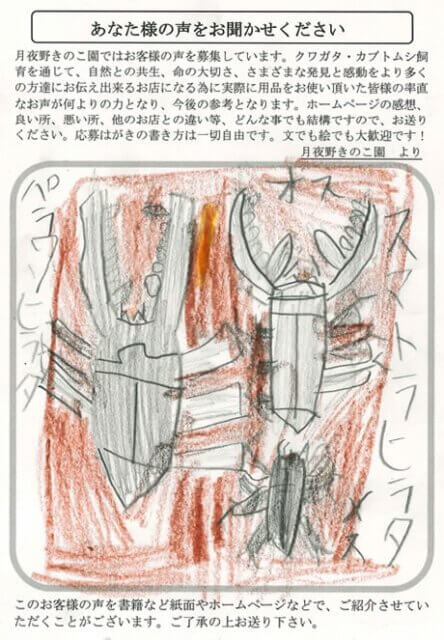 あなた様の声をお聞かせください
月夜野きのこ園ではお客様の声を募集しています。クワガタ・カブトムシ飼
育を通じて、自然との共生、命の大切さ、さまざまな発見と感動をより多く
の方達にお伝え出来るお店になる為に実際に用品をお使い頂いた皆様の率直
なお声が何よりの力となり、今後の参考となります。ホームページの感想、
良い所、悪い所、他のお店との違い等、どんな事でも結構ですので、お送り
ください。応募はがきの書き方は一切自由です。文でも絵でも大歓迎です！
月夜野きのこ園　より
オス
スマトラヒラタ
パラワンヒラタ
メス
このお客様の声を書籍など紙面やホームページなどで、ご紹介させていた
だくことがございます。ご了承の上お送り下さい。